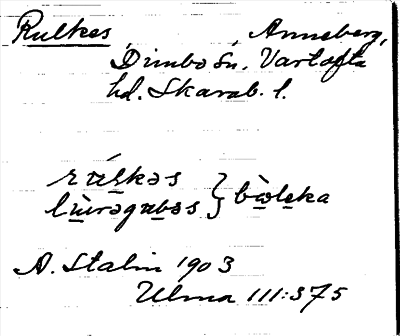 Rulkes, Anneberg,
Dimbo sn. Vartofta
hd. Skarab. l.
rúlkəs
lùrəgubəs } bòləka
A. Stalin 1903
Ulma 111:375